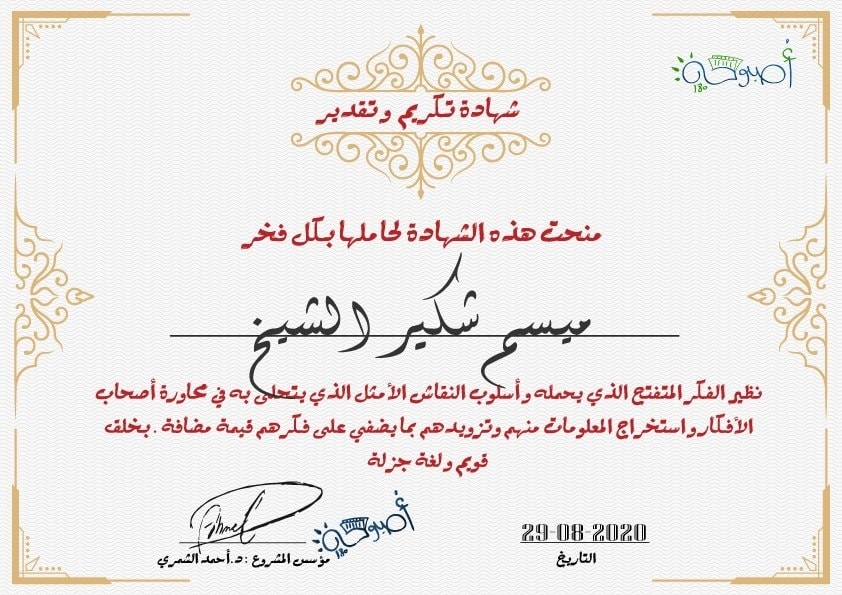 أصبوحة
180
شهادة تكريم وتقدير
منحت هذه الشهادة لحاملها بكل فخر
ميسم شكير الشيخ
نظير الفكر المتفتح الذي يحمله وأسلوب النقاش الأمثل الذي يتحلى به في محاورة أصحاب
الأفكار واستخراج المعلومات منهم وتزويدهم بما يضفي على فكرهم قيمة مضافة . بخلق
قويم ولغة جزلة
أصبوحة
180
29-08-2020
مؤسس المشروع : د.أحمد الشمري
التاريخ